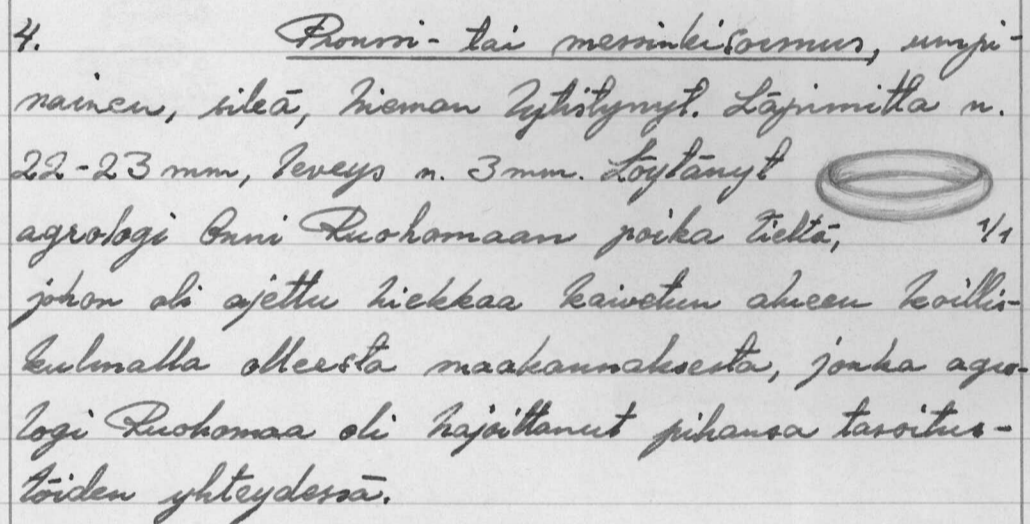 4. Pronssi- tai messinkisormus, umpi-
nainen, sileä, hieman lytistynyt. Läpimitta n.
22-23 mm, leveys n. 3 mm. Löytänyt
agrologi Onni Ruohomaan poika tieltä,
1/1
johon oli ajettu hiekkaa kaivetun alueen koillis-
kulmalla olleesta maakannaksesta, jonka agro-
logi Ruohomaa oli hajoittanut pihansa tasoitus-
töiden yhteydessä.